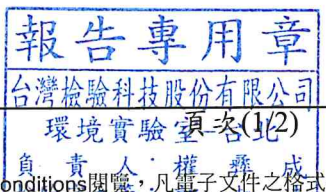 報告專用章
台灣檢驗科技股份有限公司
環境實驗室-台北
頁次(1/2)
負責人:權彝成
onditions閱覽,凡電子文件之格式